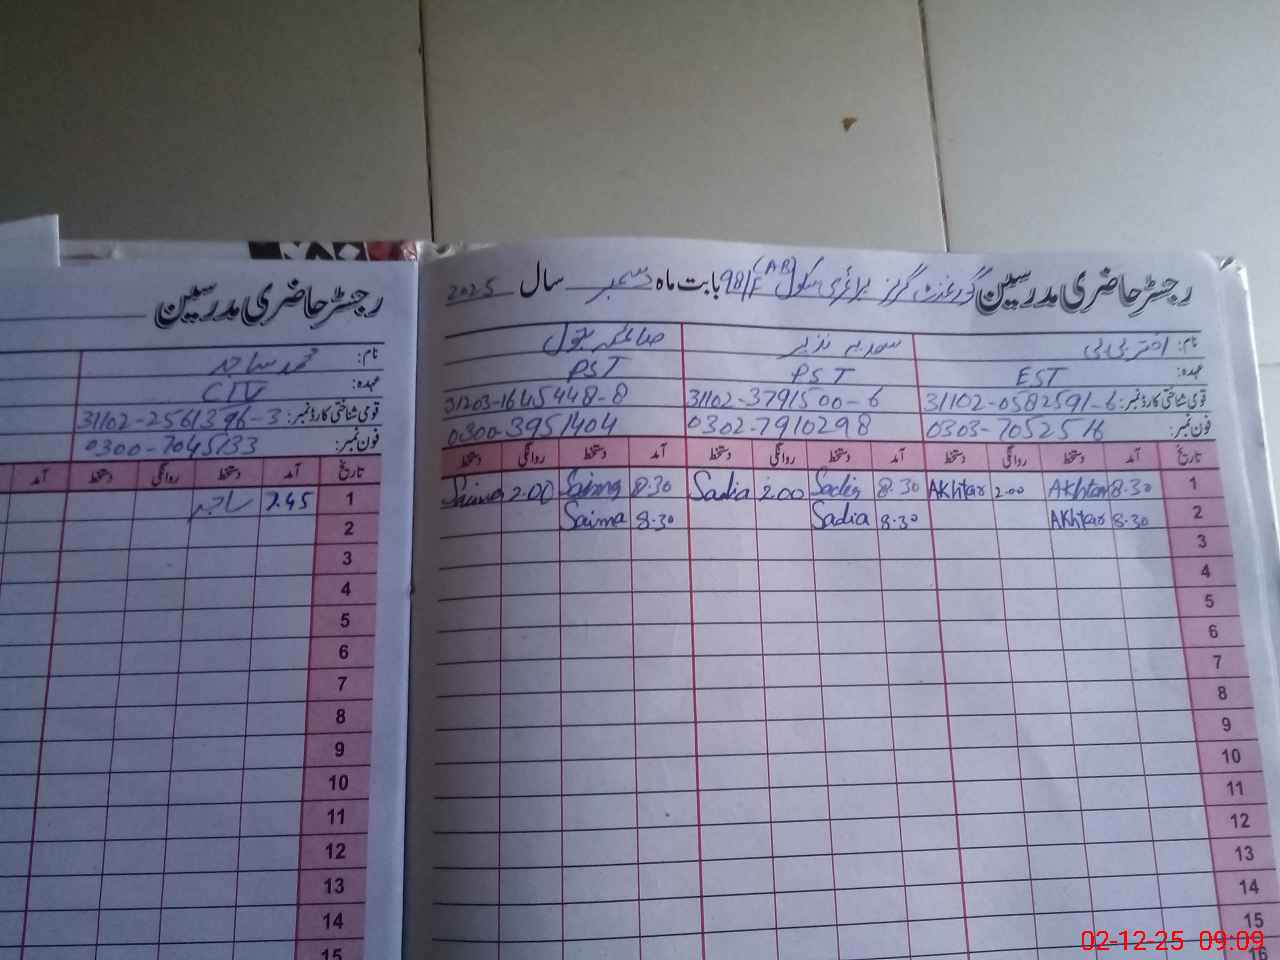 رجسٹر حاضری مدرسین گورنمنٹ گرلز پرائمری سکول 98/F (AB) بابت ماہ دسمبر سال 2025
نام: اختر بی بی سعدیہ نذیر صائمہ بتول
عہدہ: EST PST PST
قومی شناختی کارڈ نمبر: 31102-0582591-6 31102-3791500-6 31203-1645448-8
فون نمبر: 0303-7052516 0302-7910298 0300-3951404
تاریخ آمد دستخط روانگی دستخط آمد دستخط روانگی دستخط آمد دستخط روانگی دستخط
1 8.30 Akhtar 2.00 Akhtar 8.30 Sadia 2.00 Sadia 8.30 Saima 2.00 Saima
2 8.30 Akhtar 8.30 Sadia 8.30 Saima
3
4
5
6
7
8
9
10
11
12
13
14
15
16
رجسٹر حاضری مدرسین
نام: محمد ساجد
عہدہ: CIV
قومی شناختی کارڈ نمبر: 31102-2561396-3
فون نمبر: 0300-7045133
تاریخ آمد دستخط روانگی دستخط آمد
1 7.45 ساجد
2
3
4
5
6
7
8
9
10
11
12
13
14
15
02-12-25 09:09